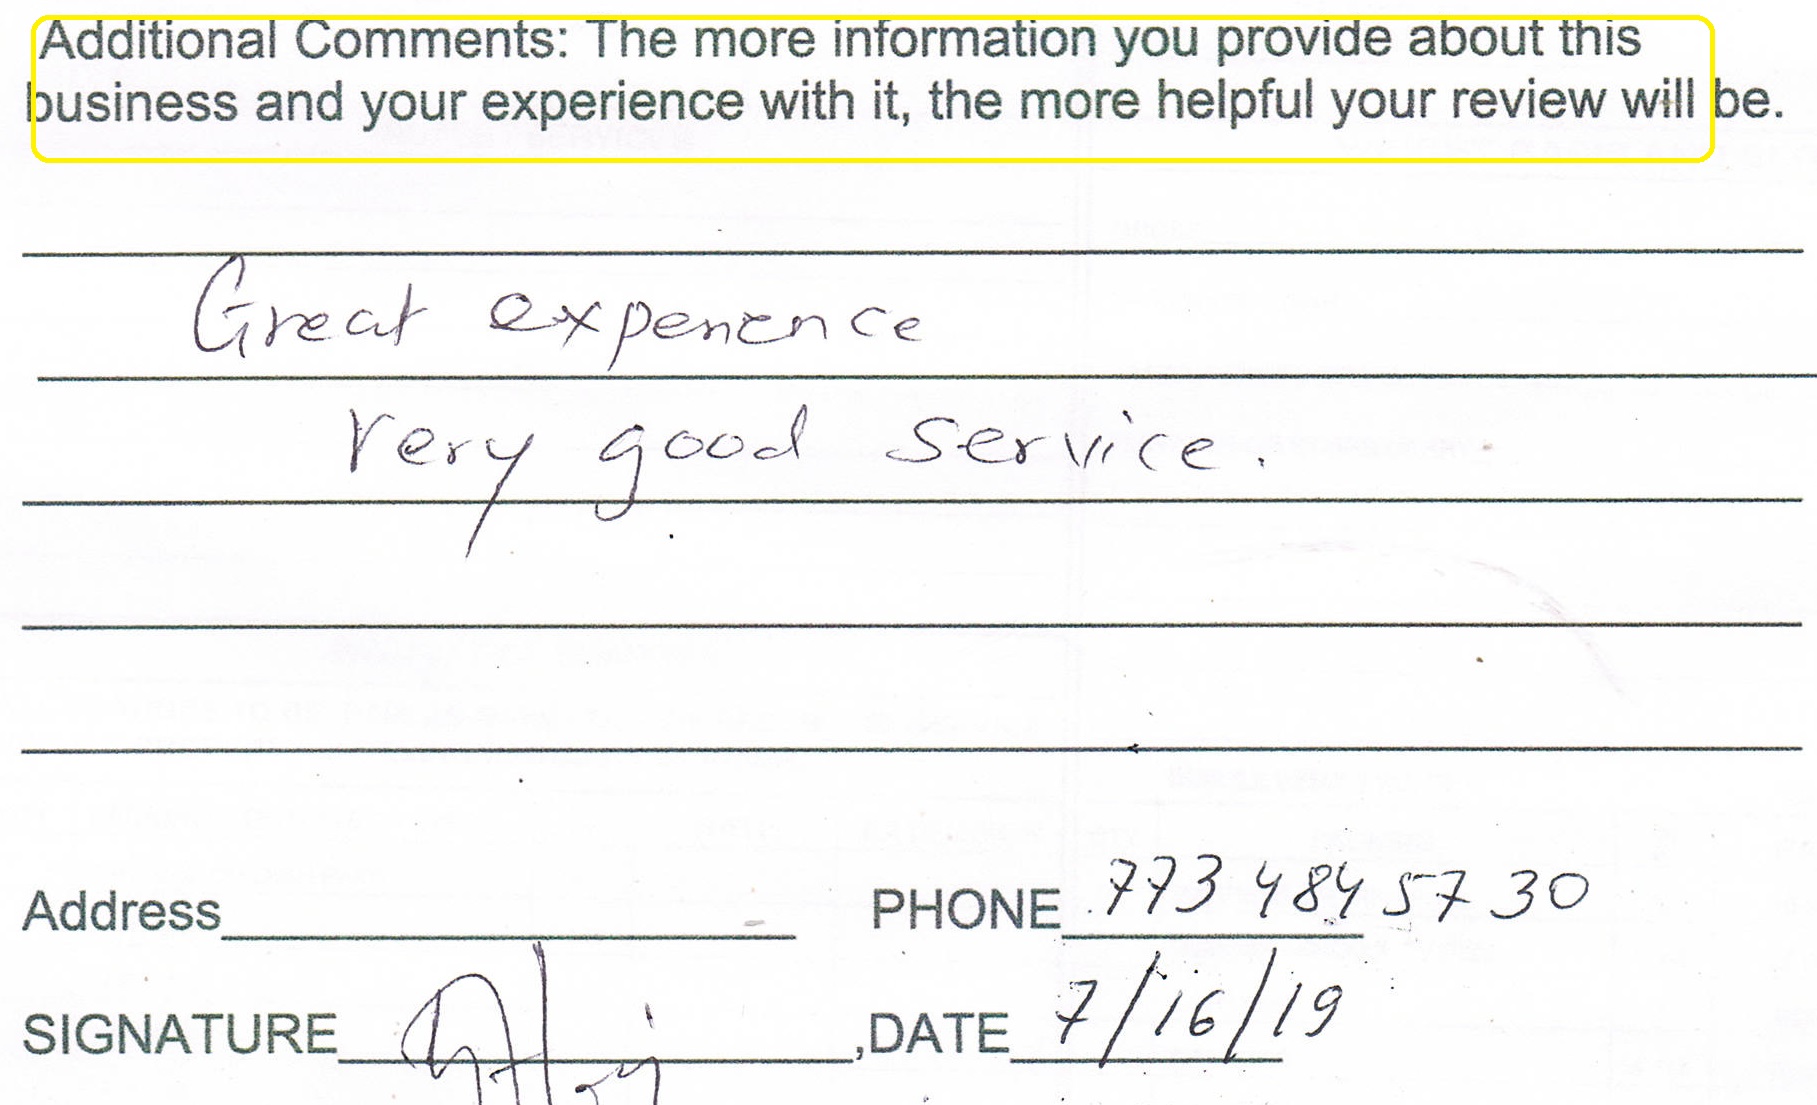 Additional Comments: The more information you provide about this
business and your experience with it, the more helpful your review will be.
Great experience
Very good service.
Address PHONE 773 484 5730
SIGNATURE ,DATE 7/16/19